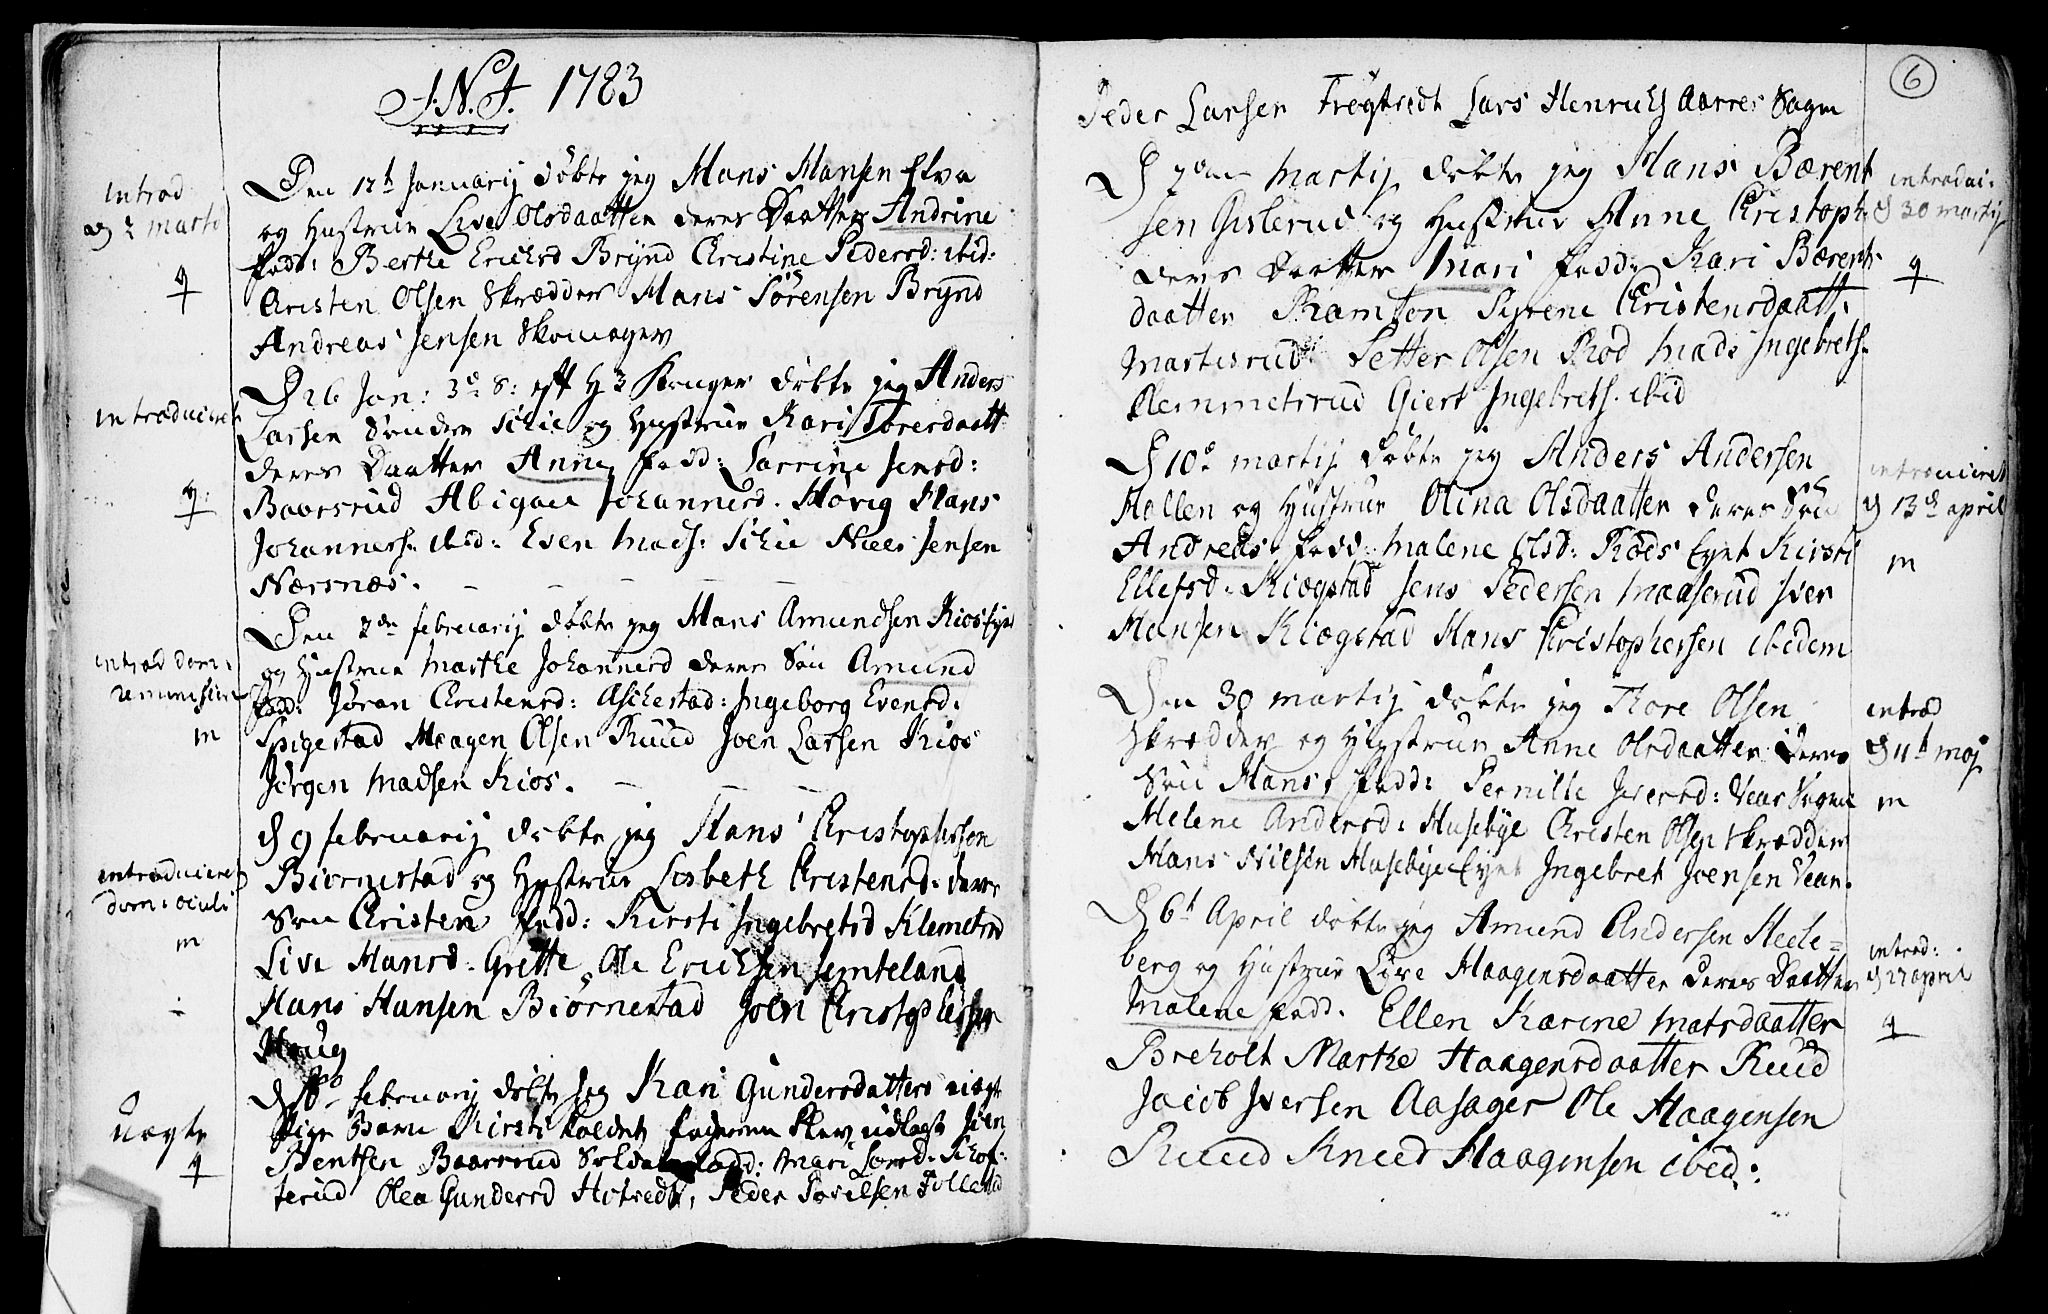 J. N. J. 1783
introd
d 2 marti
♀
Den 12th Januarij döbte jeg Hans Hansen Elva
og Hustrue Live Olsdaatter deres Daatter Andrine
fadd: Berthe Erichsd Brynd Christine Pedersd: ibid:
Christen Olsen Skrædder Hans Sörensen Brynd
Andreas Jensen Skomager
introduceret
♀
D 26 Jan: 3d S: eft H 3 Konger döbte jeg Anders
Larsen Sönden Schie og Hustrue Kari Torersdaatt
deres Daatter Anne fadd: Larrine Jensd:
Baarsrud Abigael Johannesd. Hövig Hans
Johanness. ibid: Even Mads: Schie Niels Jensen
Nærsnæs.
introd dom:
reminiscere
m
Den 2den februarij döbte jeg Hans Amundsen Kios
og Hustrue Marthe Johannesd deres Sön Amund
fadd: Jöran Christensd: Aschestad: Ingeborg Evensd:
Spigestad Haagen Olsen Ruud Joen Larsen Kios
Jörgen Madsen Kios.
introduceret
dom: oculi
m
d 9 februarij döbte jeg Hans Christophersen
Biörnestad og Hustrue Lisbeth Christensd: deres
Sön Christen fadd: Kirsti Ingebretsd Klemetsr
Live Hansd. Grette Ole Erichsen Semteland
Hans Hansen Biörnestad Joen Christophersen
Haug
Uægte
♀
d 16 februarij döbte jeg Kari Gundersdatters uægte
Pige Barn Kirsti kaldet faderen blev udlagt Joen
Bentsen Baarsrud Soldat fadd: Mari Larsd. Schof-
terud Olea Gundersd Hotvedt, Peder Povelsen Tolle
6
Peder Larsen Trögstedt Lars Henrichs Aarres Sogn
introduc:
d 30 martij
♀
D 7de martij döbte jeg Hans Bærent
sen Gislerud og Hustrue Anne Christoph:
deres Daatter Mari fadd: Kari Bærents
daatter Ramton Syrene Christensdaatt:
Martisrud: Petter Olsen Rod Mads Ingebrets.
Clemmetsrud Giert Ingebrets. ibid
introduceret
d 13d april
m
D 10d martij döbte jeg Anders Andersen
Hallen og Hustrue Olina Olsdaatter deres Sön
Andreas. fadd: Malene Olsd: Röds Eyet Kirsti
Ellefsd: Kiægstad Jens Pedersen Maaserud Iver
Hansen Kiægstad Hans Christophersen ibidem
introd
d 11th maj
m
Den 30 martij döbte jeg Thore Olsen
Skrædder og Hustrue Anne Olsdaatter deres
Sön Hans, fadd: Pernille Iversd: Vear Sogn
Helene Andersd: Husebye Christen Olsen Skrædder
Hans Nilsen Husebye Eyet Ingebret Joensen Vear.
introd:
d 27 april
♀
D 6th April döbte jeg Amund Andersen Heele=
berg og Hustrue Live Haagensdaatter deres Daatter
Malene fadd. Ellen Karine Matsdaatter
Breholt Marthe Haagensdaatter Ruud
Jacob Iversen Aasager Ole Haagensen
Ruud Knud Haagensen ibid: